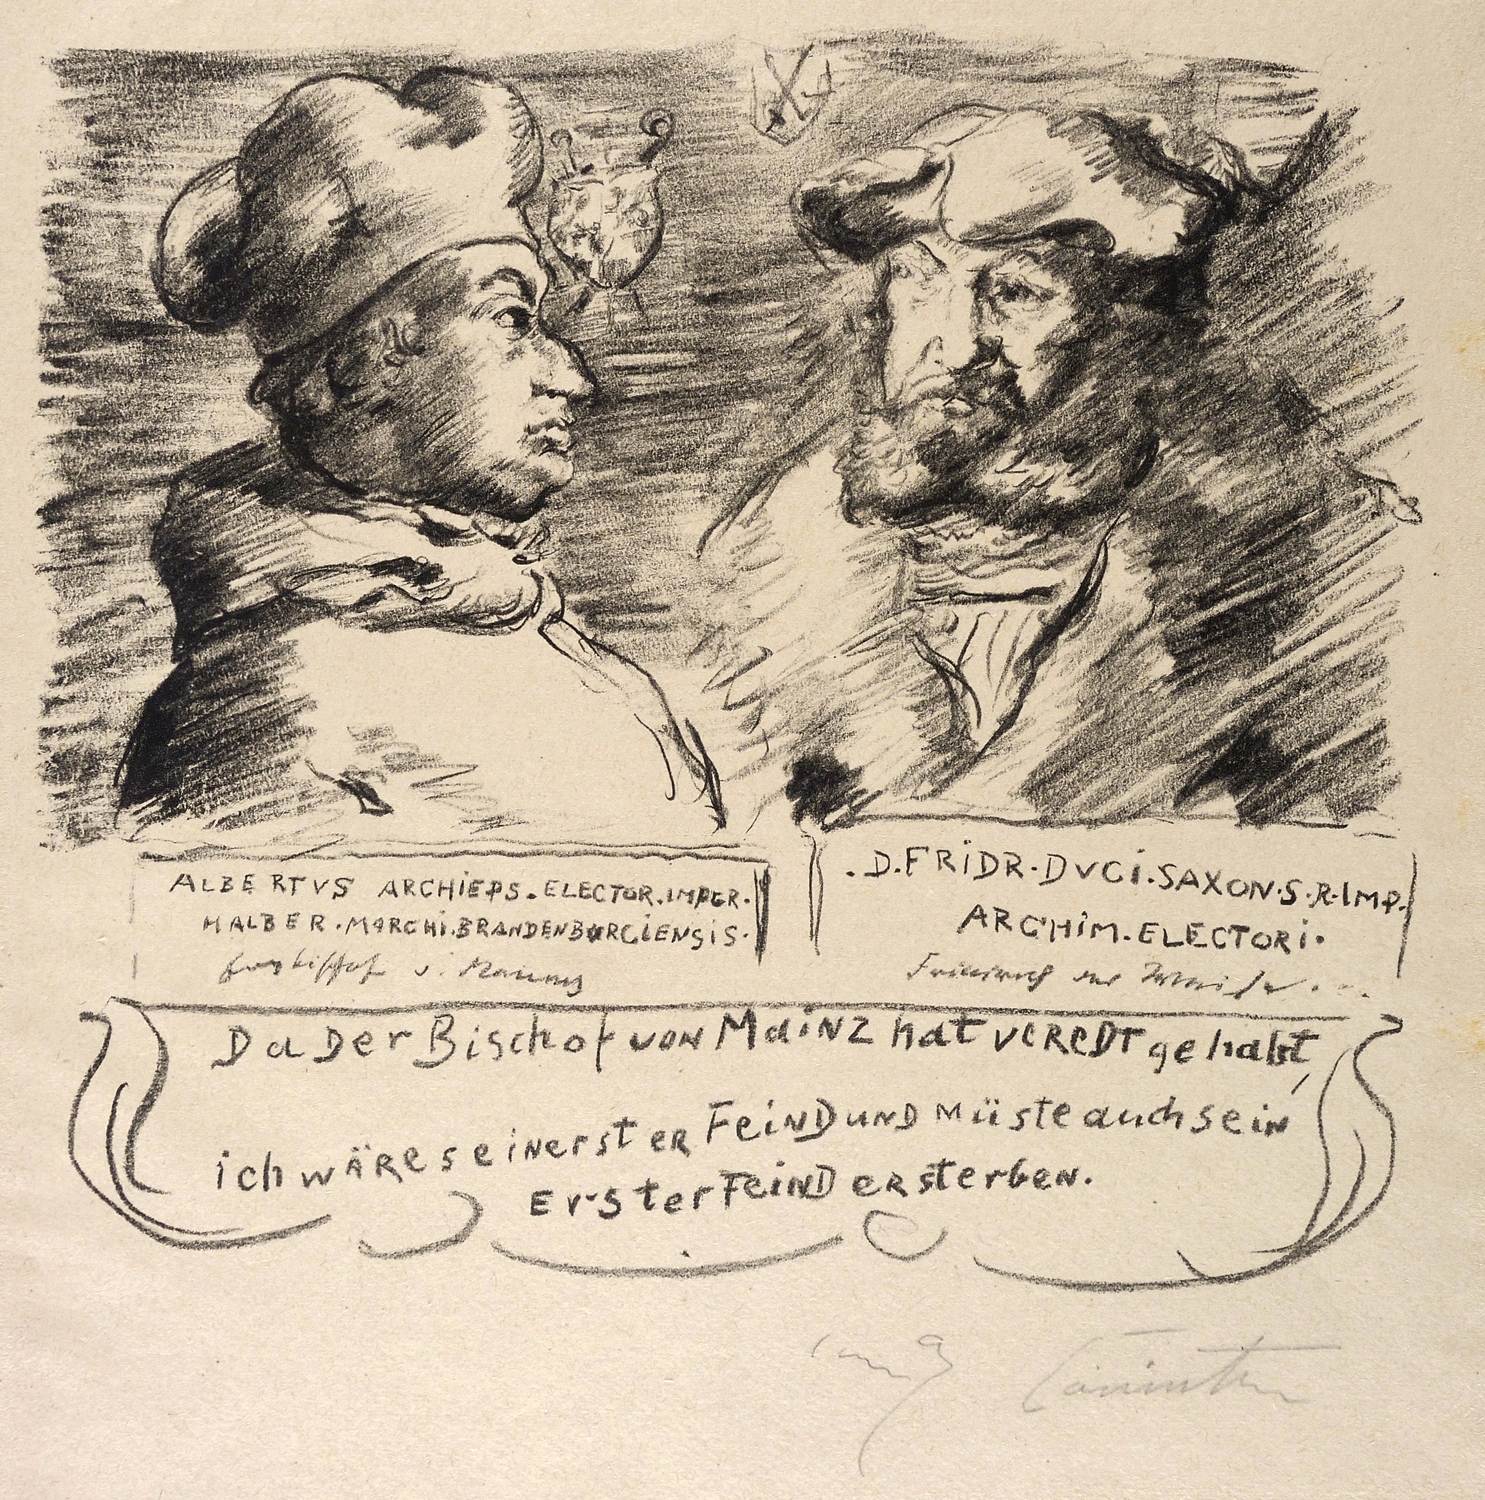 ALBERTVS ARCHiEPS. ELECTOR. IMPER.
HALBER. MARCHi. BRANDENBURGiENSiS.
. D. FRiDR. DVCi. SAXON. S. R. IMP.
ARCHiM. ELECTORi.
Da Der Bischof von Mainz hat veredt gehabt,
ich wäre sein erster Feind und müste auch sein
Erster Feind ersterben.